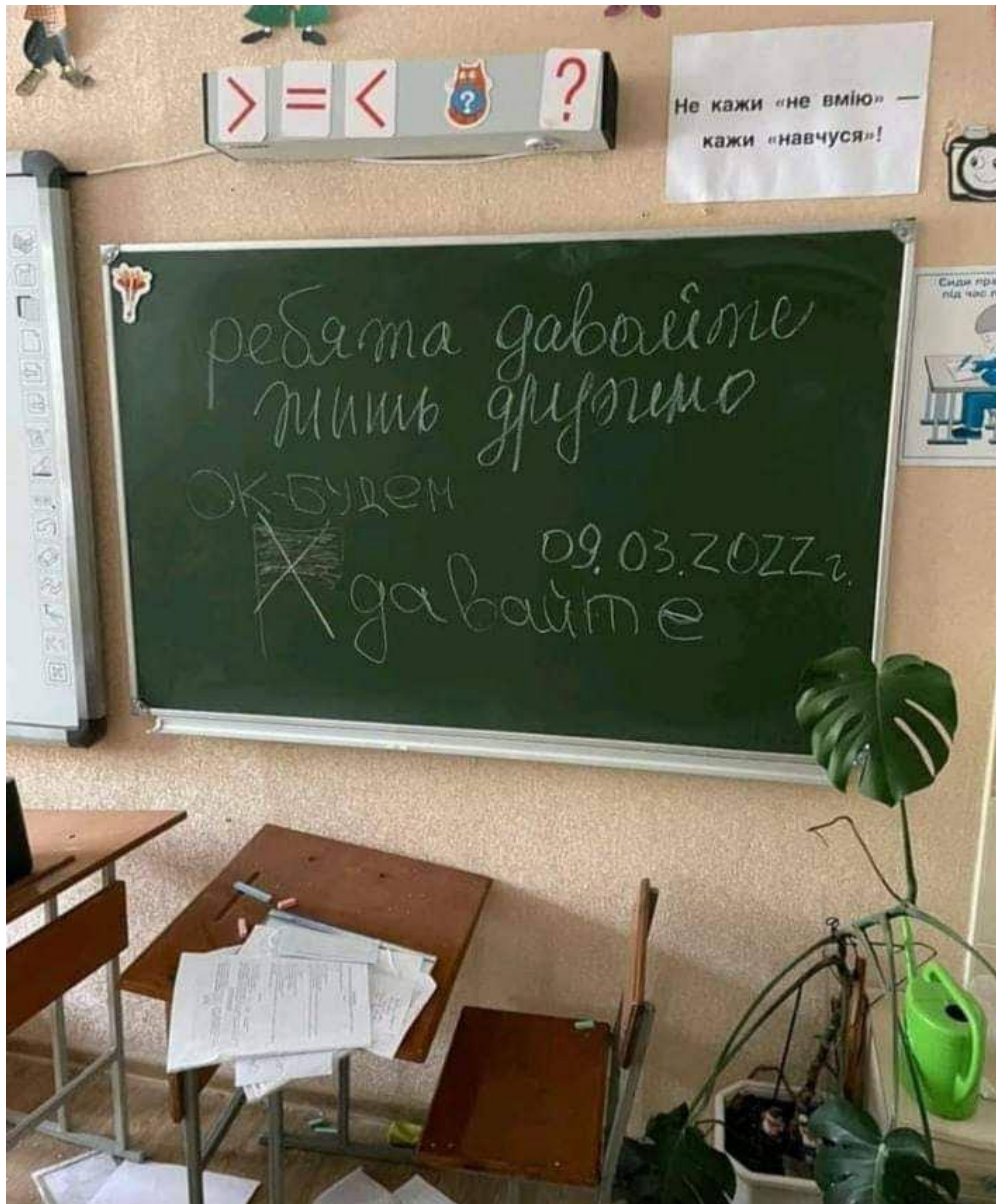 > = < ? ?
Не кажи «не вмію» —
кажи «навчуся»!
Сиди пра
під час п
ребята давайте
жить дружно
ОК-БУДЕМ
09.03.2022г.
давайте